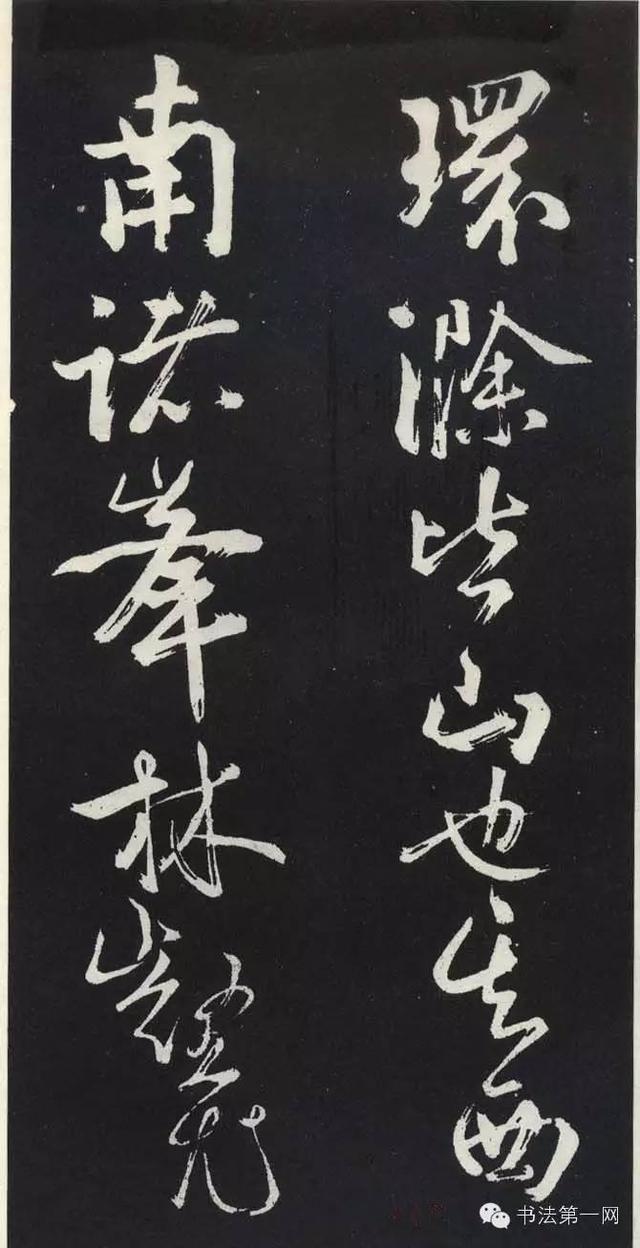 環滁皆山也其西
南諸峯林壑尤
书法第一网